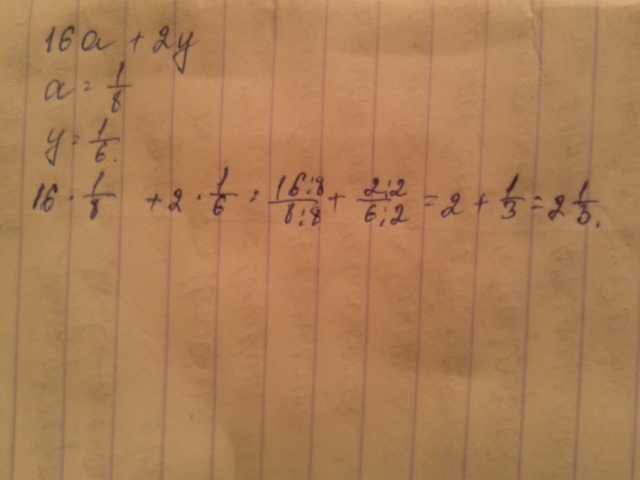 16a + 2y
a = 1/8
y = 1/6.
16 · 1/8 + 2 · 1/6 = 16:8/8:8 + 2:2/6:2 = 2 + 1/3 = 2 1/3.